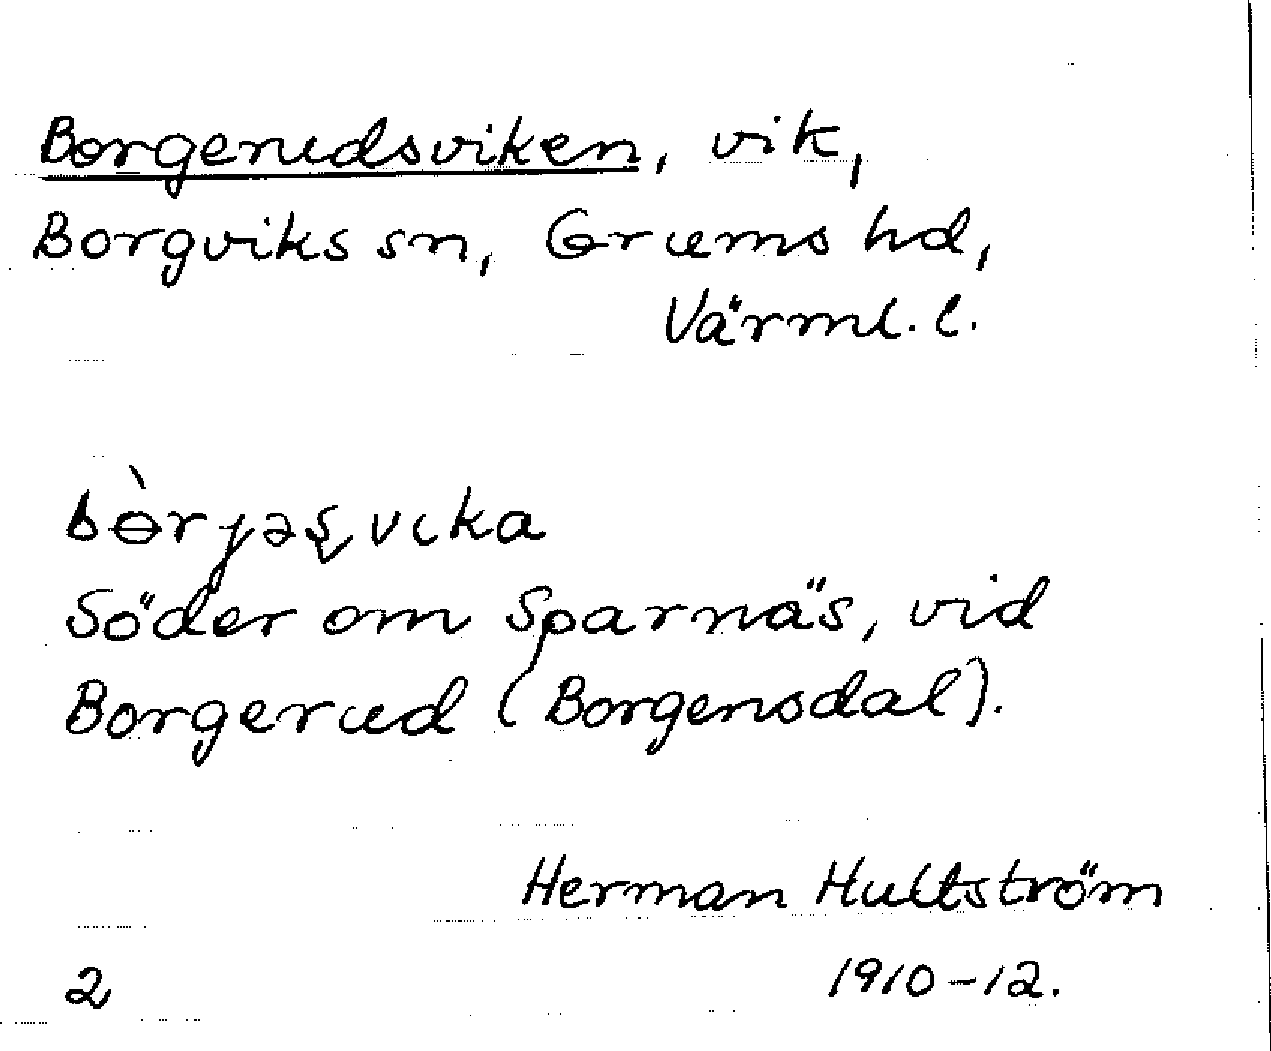 Borgerudsviken, vik,
Borgviks sn, Grums hd,
Värml. l.
bɵ̀rjəʂvɩka
Söder om Sparnäs, vid
Borgerud (Borgensdal).
Herman Hultström
2 1910-12.